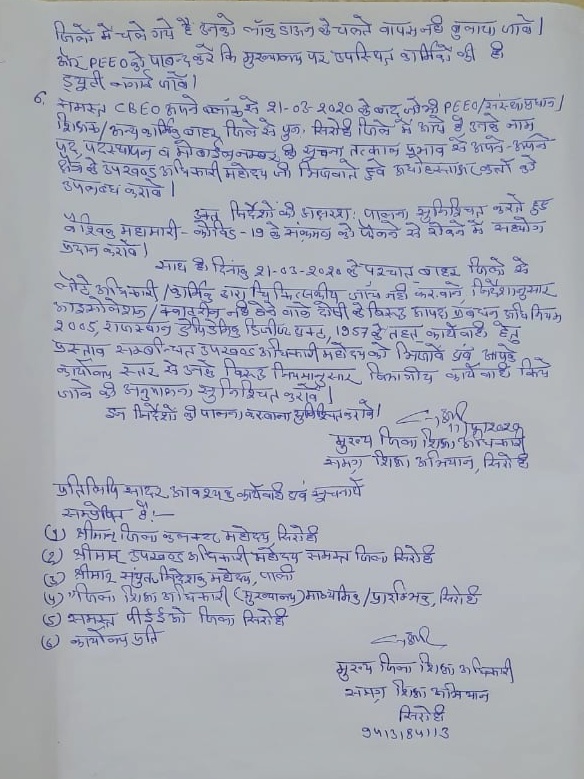 जिलों में चले गये है उनको लॉक डाउन के चलते वापस नहीं बुलाया जावे।
और PEEO को पाबन्द करें कि मुख्यालय पर उपस्थित कार्मिकों की ही
ड्यूटी लगाई जावे।
6. समस्त CBEO अपने ब्लॉक से 21-03-2020 के बाद जो भी PEEO/संस्थाप्रधान/
शिक्षक/अन्य कार्मिक बाहर जिले से पुनः सिरोही जिले में आये है उनके नाम
पद, पदस्थापन व मोबाईल नम्बर की सूचना तत्काल प्रभाव से अपने-अपने
क्षेत्र के उपखण्ड अधिकारी महोदय को भिजवाते हुवे अधोहस्ताक्षरकर्ता को
उपलब्ध करावे।
उक्त निर्देशों की अक्षरशः पालना सुनिश्चित करते हुए
वैश्विक महामारी - कोविड-19 के संक्रमण को फैलने से रोकने में सहयोग
प्रदान करावे।
साथ ही दिनांक 21-03-2020 के पश्चात बाहर जिलो से
लौटे अधिकारी/कार्मिक द्वारा चिकित्सकीय जाँच नहीं करवाने, निर्देशानुसार
आइसोलेशन/क्वारटीन नहीं होने वाले दोषी के विरूद्ध आपदा प्रबन्धन अधिनियम
2005, राजस्थान एपिडेमिक डिजीज एक्ट, 1957 के तहत कार्यवाही हेतु
प्रस्ताव सम्बन्धित उपखण्ड अधिकारी महोदय को भिजावें एवं आपके
कार्यालय स्तर से उनके विरूद्ध नियमानुसार विभागीय कार्यवाही किये
जाने की अनुपालना सुनिश्चित करावें।
इन निर्देशों की पालना करवाना सुनिश्चित करावें।
मुख्य जिला शिक्षा अधिकारी
समग्र शिक्षा अभियान, सिरोही
प्रतिलिपि सादर आवश्यक कार्यवाही एवं सूचनार्थ
सम्प्रेषित है:—
(1) श्रीमान् जिला कलक्टर महोदय सिरोही
(2) श्रीमान् उपखण्ड अधिकारी महोदय समस्त जिला सिरोही
(3) श्रीमान् संयुक्त निदेशक महोदय, पाली
(4) जिला शिक्षा अधिकारी (मुख्यालय) माध्यमिक/प्रारम्भिक, सिरोही
(5) समस्त पीईईओ जिला सिरोही
(6) कार्यालय प्रति
मुख्य जिला शिक्षा अधिकारी
समग्र शिक्षा अभियान
सिरोही
9413184113